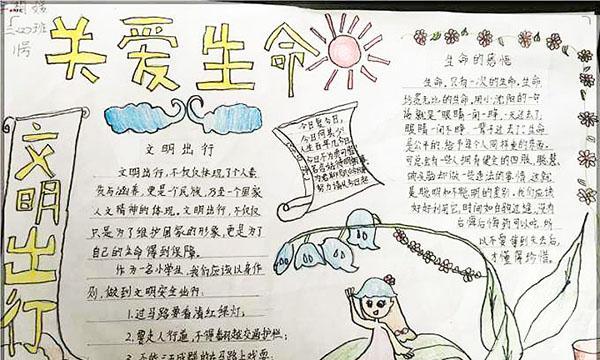 三(四)班
1号
关爱生命
文明出行
文明出行
文明出行,不仅仅体现了个人素
质与涵养,更是个民族,乃至一个国家
人文精神的体现。文明出行,不仅仅
只是为了维护国家的形象,更是为了
自己的生命得到保障。
作为一名小学生,我们应该以身作
则,做到文明安全出行:
1.过马路要看清红绿灯;
2.要走人行道,不得翻越交通护栏;
3.不能三五成群的在马路上戏耍
今日复今日,
今日何其少!
努力请从今日起
生命的感悟
生命,只有一次的生命,生命
是无比的生命,用小沈阳的一句
话就是"眼睛一闭一睁,一天过去了,
眼睛一闭不睁,一辈子过去了"生命
是公平的,给予每个人同样重的东西。
可总会有一些人拥有健全的四肢、
却去做一些违法的事情,这就
是聪明和不聪明的差别。我们应该
好好利用它,时间如白驹过隙,没有
后悔后悔药可以吃,所
以不要等到失去后,
才懂得珍惜。